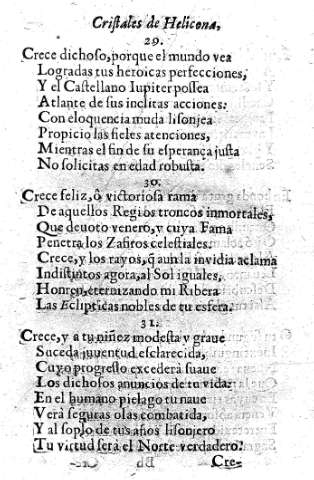 Cristales de Helicona,
29.
Crece dichoso, porque el mundo vea
Logradas tus heroicas perfecciones,
Y el Castellano Iupiter possea
Atlante de sus inclitas acciones.
Con eloquencia muda lisonjea
Propicio las fieles atenciones,
Mientras el fin de su esperança justa
No solicitas en edad robusta.
30.
Crece feliz, ô victoriosa rama
De aquellos Regios troncos inmortales,
Que deuoto venero, y cuya Fama
Penetra los Zafiros celestiales.
Crece, y los rayos, q̃ aun la invidia aclama
Indistintos agora, al Sol iguales,
Honren, eternizando mi Ribera
Las Eclipticas nobles de tu esfera.
31.
Crece, y a tu niñez modesta y graue
Suceda juuentud esclarecida,
Cuyo progresso excederá suaue
Los dichosos anuncios de tu vida:
En el humano pielago tu naue
Verà seguras olas combatida,
Y al soplo de tus años lisonjero
Tu virtud serà el Norte verdadero.
Bb
Cre-